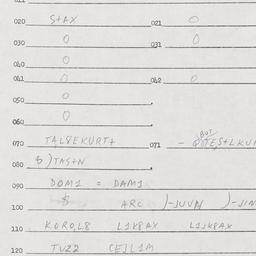 020 S+AX 021 0
030 0 031 0
040 0
041 0 042 0
050 0
060 0
070 TAL8EKURT+ 071 -
080 $)TAS+N
090 DOM1 = DAM1
100 $ ARC )-JUVN )-JIN
110 KORO,L8 L1K8AX L1JK8AX
120 TU22 CEJL1M